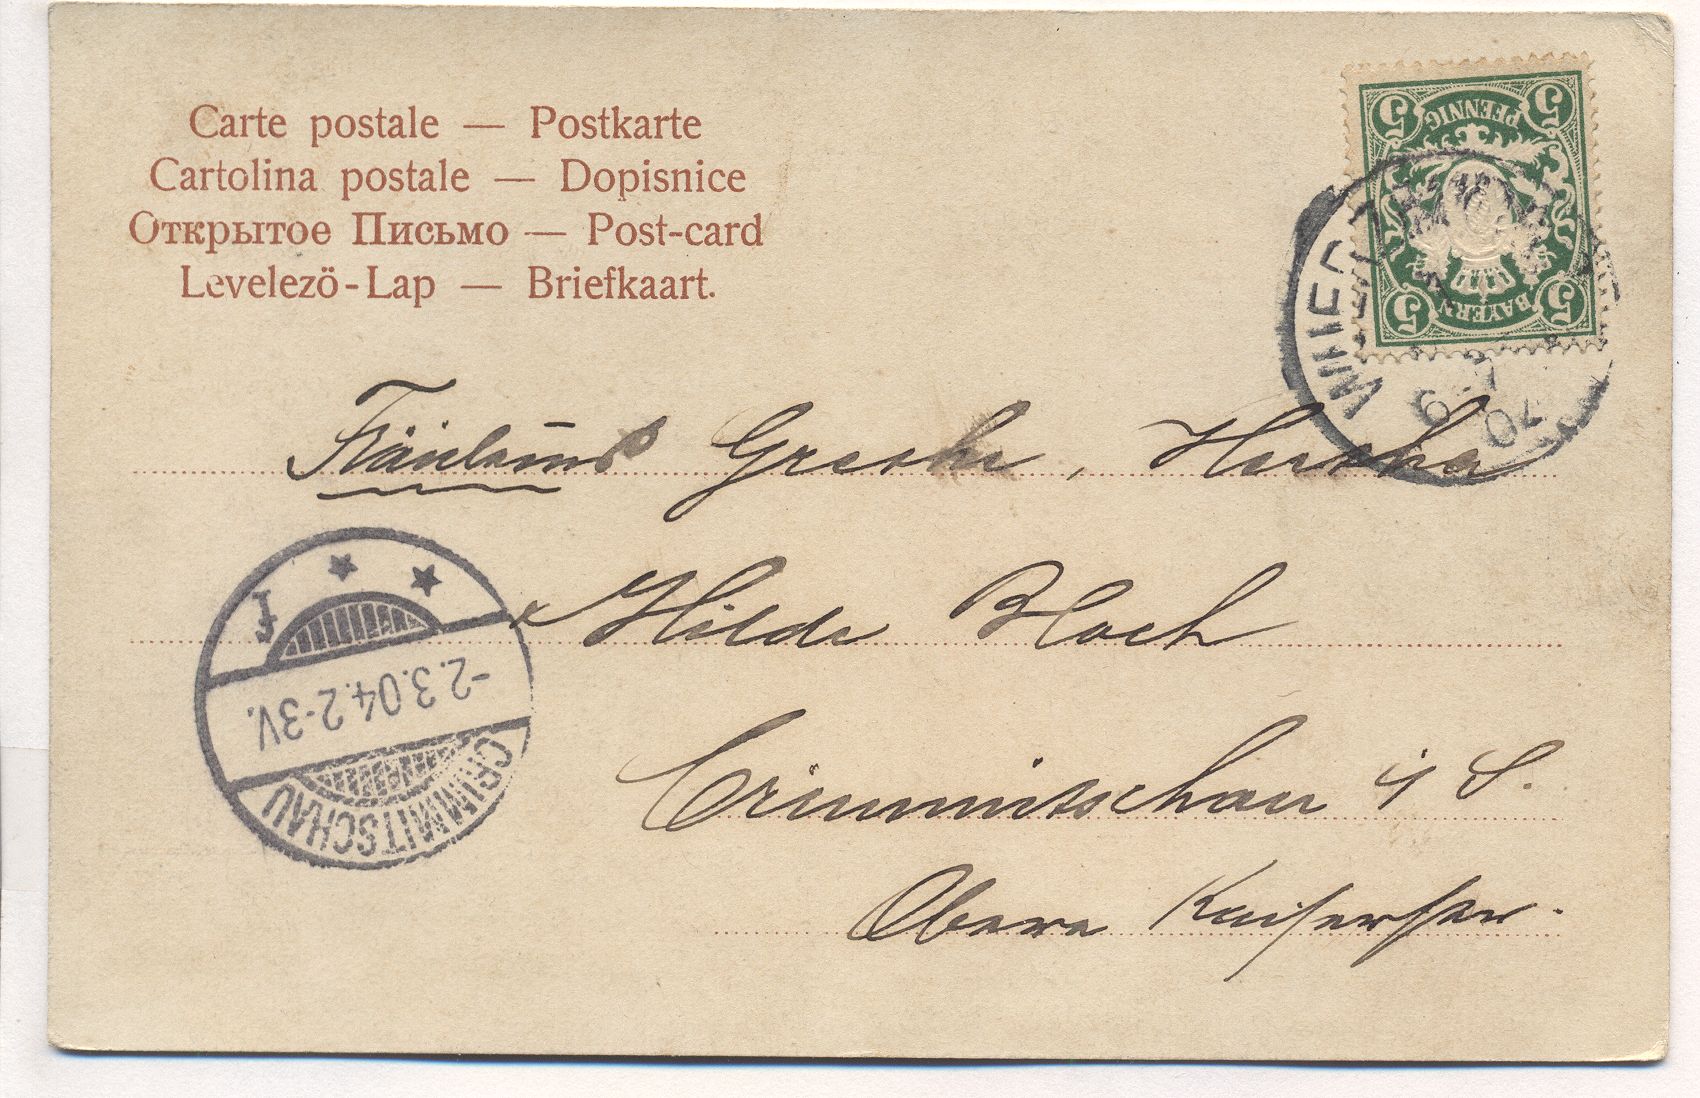 Carte postale — Postkarte
Cartolina postale — Dopisnice
Открытое Письмо — Post-card
Levelező-Lap — Briefkaart.
5 PFENNIG 5
5 BAYERN 5
Fräuleins Grethe, Hertha
& Hilde Bloch
Crimmitschau i S.
Obere Kaiserstr.
CRIMMITSCHAU
-2.3.04.2-3V.